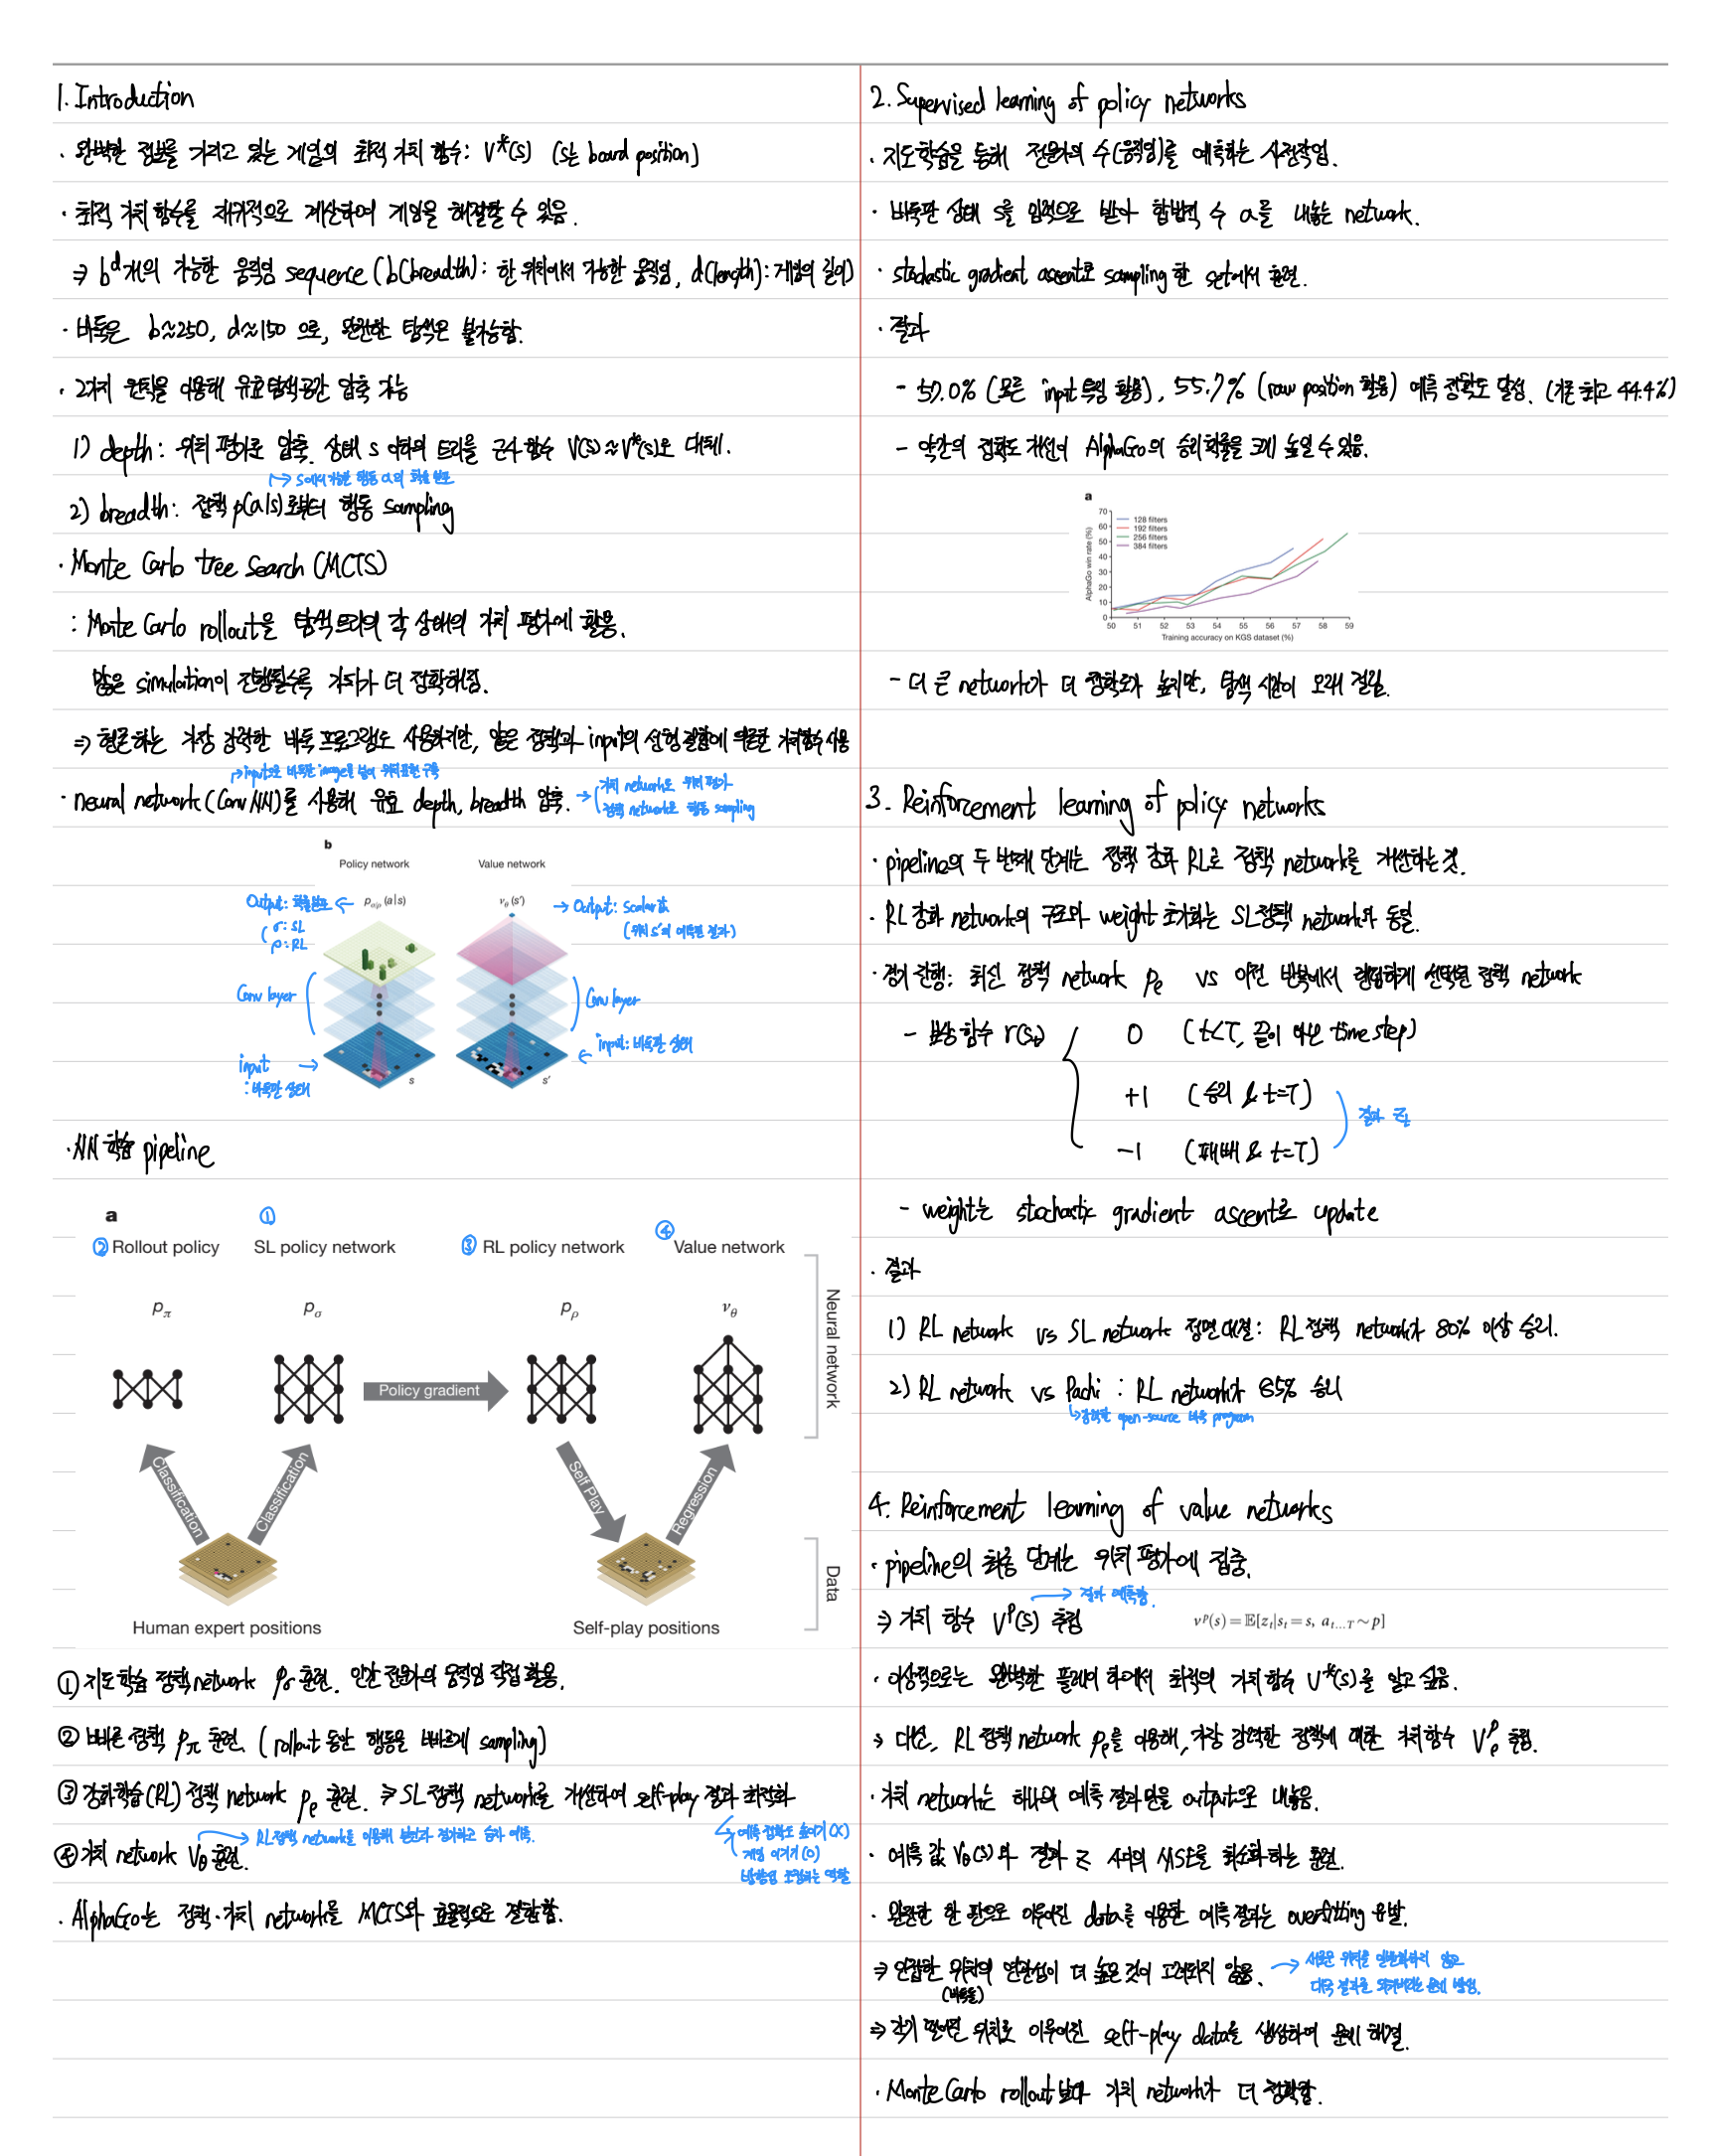 1. Introduction
· 완벽한 정보를 가지고 있는 게임의 최적 가치 함수: V*(s) (s는 board position)
· 최적 가치 함수를 재귀적으로 계산하여 게임을 해결할 수 있음.
⇒ b^d개의 가능한 움직임 sequence (b(breadth): 한 위치에서 가능한 움직임, d(length): 게임의 길이)
· 바둑은 b≈250, d≈150 으로, 완전한 탐색은 불가능함.
· 2가지 원칙을 이용해 유효탐색공간 압축 가능
1) depth: 위치 평가로 압축. 상태 s 이하의 트리를 근사 함수 V(s)≈V*(s)로 대체.
→ s에서 가능한 행동 a의 확률 분포
2) breadth: 정책 p(a|s)로부터 행동 sampling
· Monte Carlo tree Search (MCTS)
: Monte Carlo rollout을 탐색트리의 각 상태의 가치 평가에 활용.
많은 simulation이 진행될수록 가치가 더 정확해짐.
⇒ 현존하는 가장 강력한 바둑 프로그램도 사용하지만, 얕은 정책과 input의 선형결합에 의존한 가치함수 사용
→ input으로 바둑판 image를 넣어 위치표현 구축
· neural network (Conv NN)를 사용해 유효 depth, breadth 압축. → ( 가치 network로 위치 평가
정책 network로 행동 sampling
b
Policy network Value network
Output: 확률분포 ← p_σ/ρ (a|s) ν_θ (s') → Output: Scalar값
( σ: SL (위치 s'의 예측된 결과)
ρ: RL
Conv layer Conv layer
input → ← input: 바둑판 상태
: 바둑판 상태 s s'
· NN 학습 pipeline
a ① ④
② Rollout policy SL policy network ③ RL policy network Value network
p_π p_σ p_ρ ν_θ
Neural network
Policy gradient
Classification Classification Self Play Regression
Data
Human expert positions Self-play positions
① 지도학습 정책 network p_σ 훈련. 인간 전문가의 움직임 직접 활용.
② 빠른 정책 p_π 훈련. (rollout 동안 행동을 빠르게 sampling)
③ 강화학습(RL) 정책 network p_ρ 훈련. ⇒ SL 정책 network를 개선하여 self-play 결과 최적화
→ RL정책 network를 이용해 본인과 경기하고 승자 예측. 예측 정확도 높이기 (X)
④ 가치 network V_θ 훈련. 게임 이기기 (O)
방향으로 조정하는 역할
· AlphaGo는 정책·가치 network를 MCTS와 효율적으로 결합함.
2. Supervised learning of policy networks
· 지도학습을 통해 전문가의 수(움직임)를 예측하는 사전작업.
· 바둑판 상태 s를 입력으로 받아 합법적 수 a를 내놓는 network.
· stochastic gradient ascent로 sampling 한 set에서 훈련.
· 결과
- 57.0% (모든 input 특징 활용), 55.7% (raw position 활용) 예측 정확도 달성. (기존 최고 44.4%)
- 약간의 정확도 개선이 AlphaGo의 승리확률을 크게 높일 수 있음.
a
AlphaGo win rate (%)
70
60
50
40
30
20
10
0
128 filters
192 filters
256 filters
384 filters
50 51 52 53 54 55 56 57 58 59
Training accuracy on KGS dataset (%)
- 더 큰 network가 더 정확도가 높지만, 탐색 시간이 오래 걸림.
3. Reinforcement learning of policy networks
· pipeline의 두 번째 단계는 정책 강화 RL로 정책 network를 개선하는 것.
· RL 강화 network의 구조와 weight 초기화는 SL정책 network와 동일.
· 경기 진행: 최신 정책 network p_ρ vs 이전 반복에서 랜덤하게 선택된 정책 network
- 보상 함수 r(s_t) { 0 (t<T, 끝이 아닌 time step)
+1 (승리 & t=T)
) 결과 z_t
-1 (패배 & t=T)
- weight는 stochastic gradient ascent로 update
· 결과
1) RL network vs SL network 정면대결: RL정책 network가 80% 이상 승리.
2) RL network vs Pachi : RL network가 85% 승리
↳강력한 open-source 바둑 program
4. Reinforcement learning of value networks
· pipeline의 최종 단계는 위치 평가에 집중.
→ 결과 예측함.
⇒ 가치 함수 V^p(s) 추정 ν^p(s) = 𝔼[z_t|s_t = s, a_t...T ~ p]
· 이상적으로는 완벽한 플레이 하에서 최적의 가치 함수 V*(s)를 알고 싶음.
⇒ 대신, RL 정책 network p_ρ를 이용해, 가장 강력한 정책에 대한 가치함수 V^p_ρ 추정.
· 가치 network는 하나의 예측 결과만을 output으로 내놓음.
· 예측 값 V_θ(s)와 결과 z 사이의 MSE를 최소화 하는 훈련.
· 완전한 한 판으로 이루어진 data를 이용한 예측 결과는 overfitting 유발.
⇒ 인접한 위치의 연관성이 더 높은 것이 고려되지 않음. → 새로운 위치를 일반화하지 않고
(바둑돌) 대국 결과를 외워버리는 문제 발생.
⇒ 각기 떨어진 위치로 이루어진 self-play data를 생성하여 문제 해결.
· Monte Carlo rollout보다 가치 network가 더 정확함.